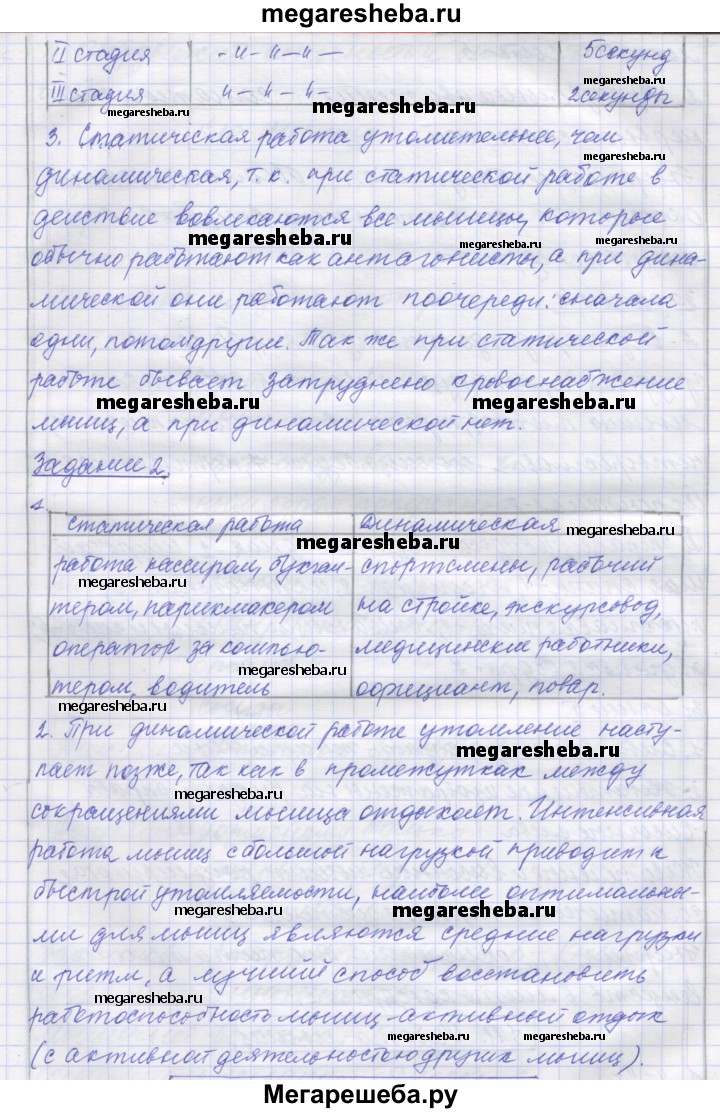 megaresheba.ru
II стадия -//- //- //- 5 секунд
megaresheba.ru
III стадия //- //- //- 2 секунды
megaresheba.ru
megaresheba.ru
3. Статическая работа утомительнее, чем
megaresheba.ru
динамическая, т.к. при статической работе в
действие вовлекаются все мышцы, которые
megaresheba.ru megaresheba.ru megaresheba.ru
обычно работают как антагонисты, а при дина-
мической они работают поочереди: сначала
одни, потом другие. Так же при статической
работе бывает затруднено кровоснабжение
megaresheba.ru megaresheba.ru
мышц, а при динамической нет.
Задание 2.
1.
статическая работа Динамическая
megaresheba.ru
megaresheba.ru
работа кассиром, бухгал- спортсмены, рабочий
megaresheba.ru
тером, парикмахером на стройке, экскурсовод,
оператор за компью- медицинские работники,
megaresheba.ru
тером, водитель официант, повар.
megaresheba.ru
2. При динамической работе утомление насту-
megaresheba.ru
пает позже, так как в промежутках между
megaresheba.ru
сокращениями мышца отдыхает. Интенсивная
работа мышц с большой нагрузкой приводит к
быстрой утомляемости, наиболее оптимальны-
megaresheba.ru megaresheba.ru
ми для мышц являются средние нагрузки
и ритм, а лучший способ восстановить
megaresheba.ru
работоспособность мышц - активный отдых
megaresheba.ru megaresheba.ru
(с активной деятельностью других мышц).
Мегарешеба.ру